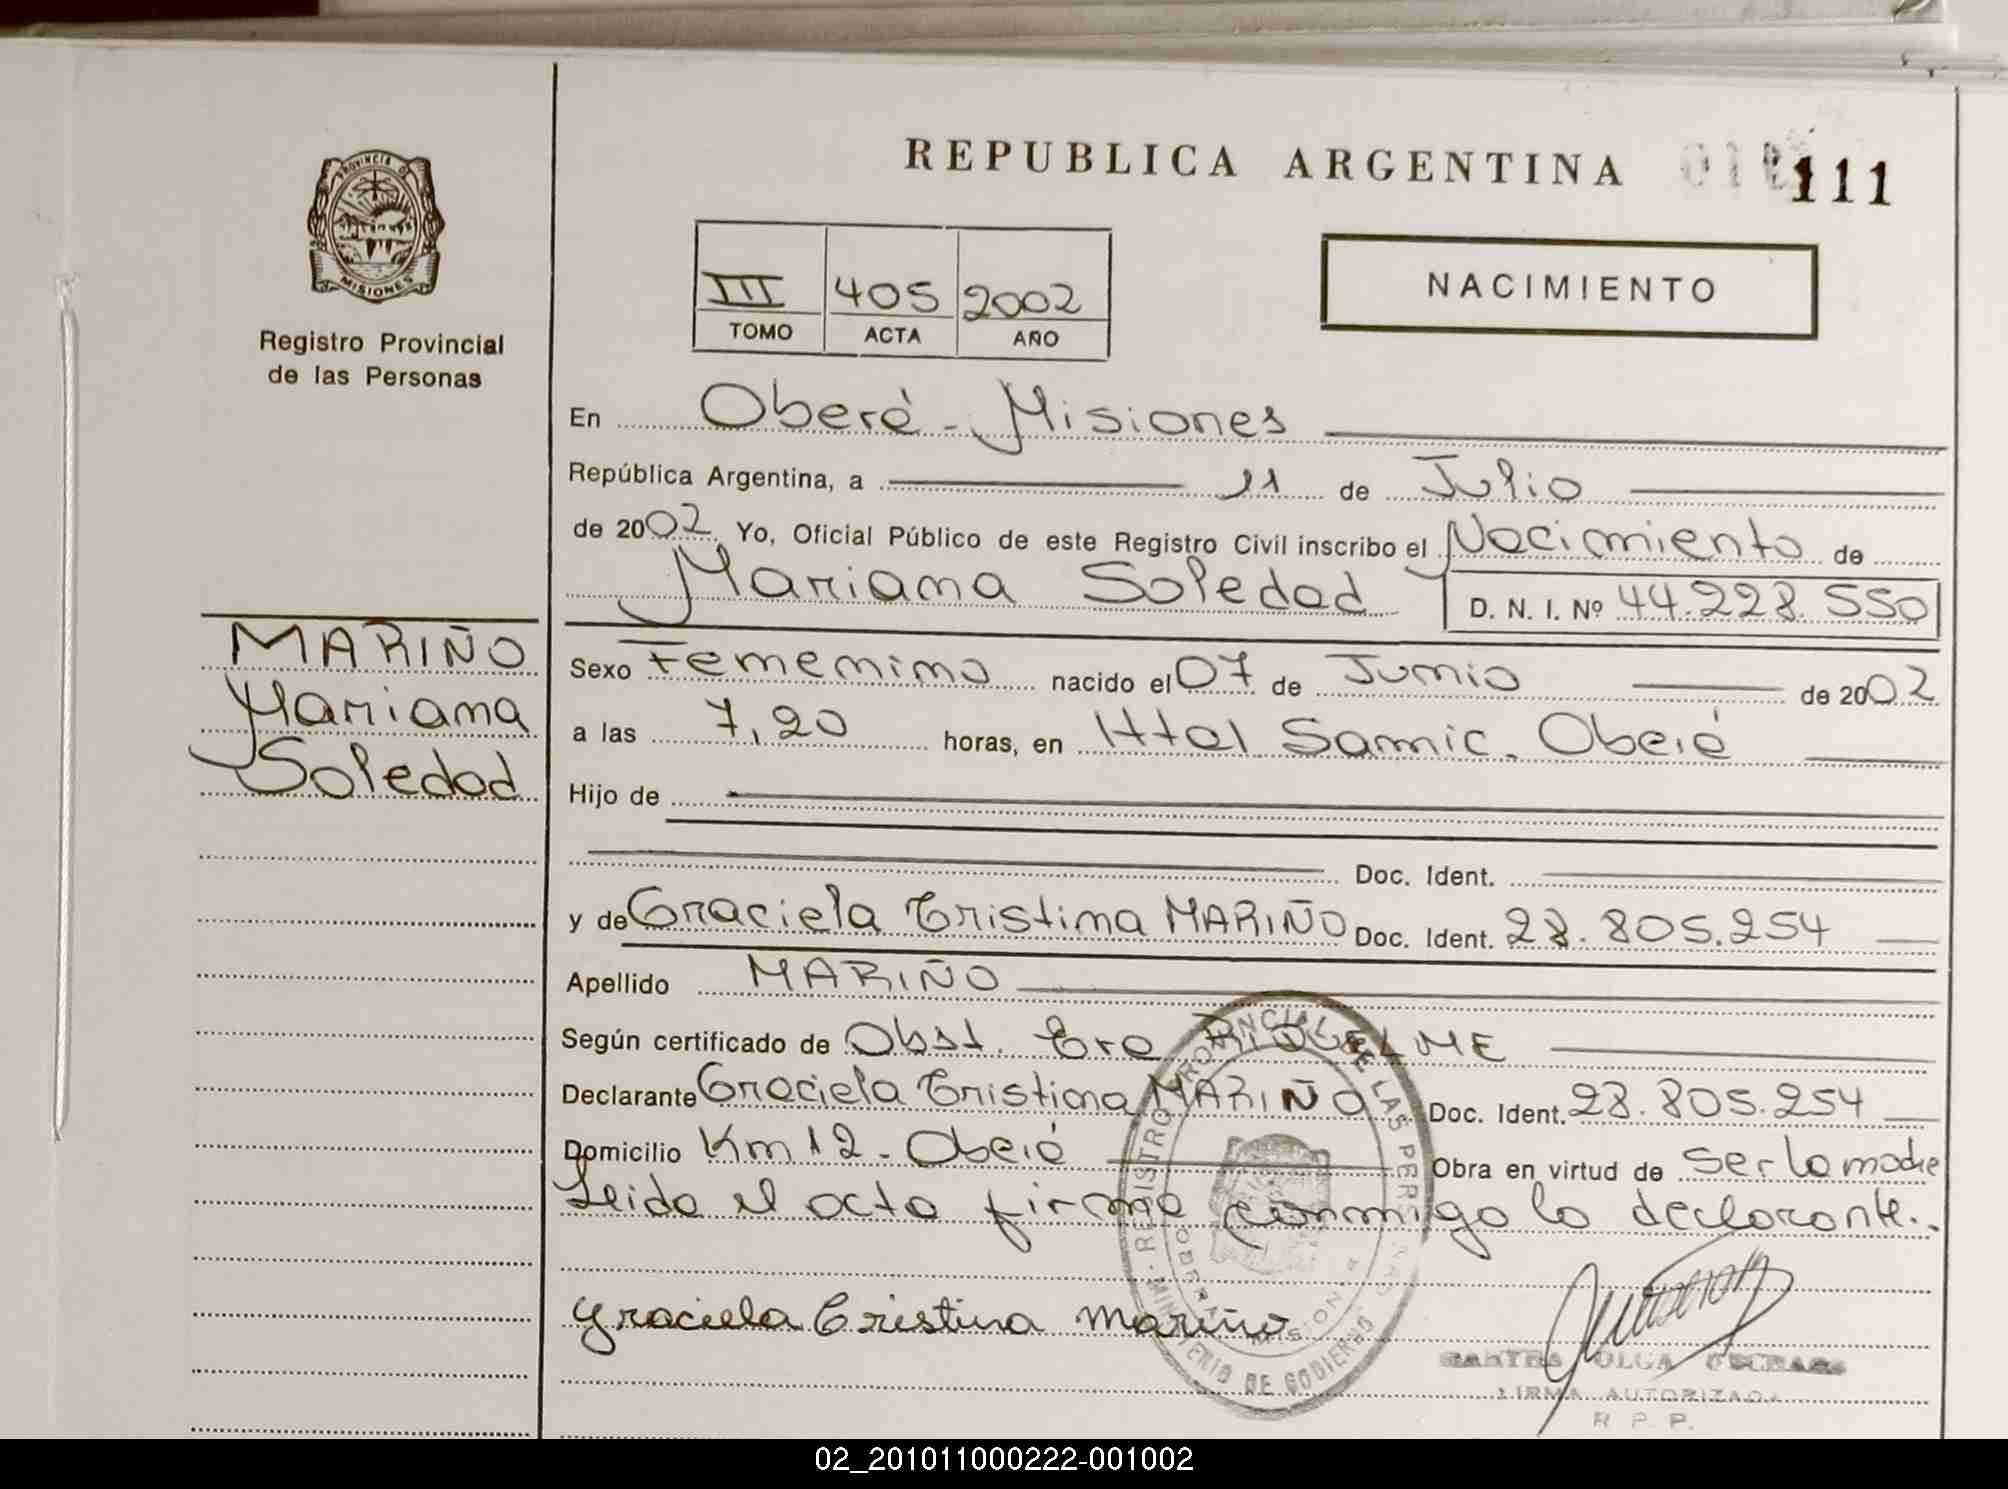 PROVINCIA DE
MISIONES
Registro Provincial
de las Personas
REPUBLICA ARGENTINA 111
NACIMIENTO
III 405 2002
TOMO ACTA AÑO
En Oberá - Misiones
República Argentina, a 11 de Julio
de 2002 Yo, Oficial Público de este Registro Civil inscribo el Nacimiento de
Mariana Soledad D. N. I. Nº 44.228.550
MARIÑO
Mariana
Soledad
Sexo Femenino nacido el 07 de Junio de 2002
a las 7,20 horas, en Htal Samic. Oberá
Hijo de
Doc. Ident.
y de Graciela Cristina MARIÑO Doc. Ident. 28.805.254
Apellido MARIÑO
Según certificado de Obst.
Declarante Graciela Cristina MARIÑO Doc. Ident. 28.805.254
Domicilio Km 12 - Oberá Obra en virtud de ser la madre
Leida el acta firma conmigo la declarante.
Graciela Cristina Mariño
REGISTRO PROVINCIAL DE LAS PERSONAS
MINISTERIO DE GOBIERNO
MISIONES
OLGA
FIRMA AUTORIZADA
R. P. P.
02_201011000222-001002